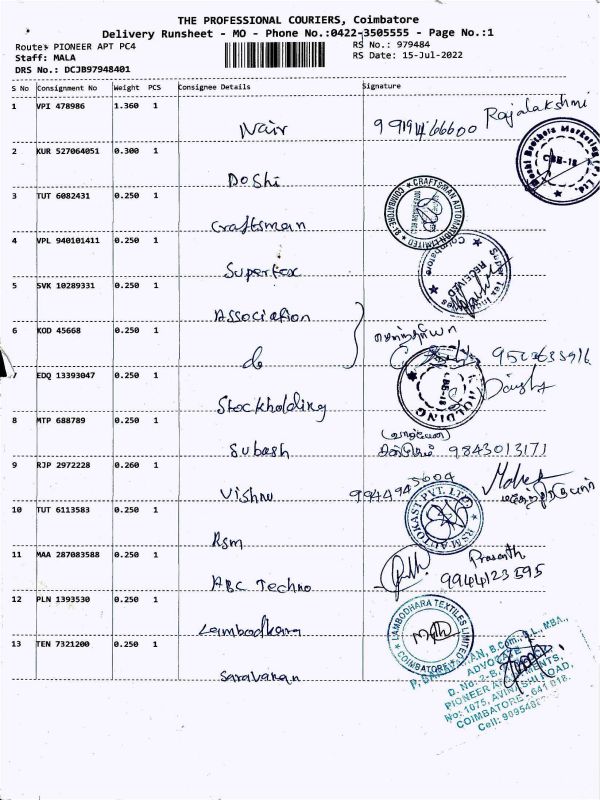 THE PROFESSIONAL COURIERS, Coimbatore
Delivery Runsheet - MO - Phone No.:0422-3505555 - Page No.:1
Route: PIONEER APT PC4 RS No.: 979484
Staff: MALA RS Date: 15-Jul-2022
DRS No.: DCJB97948401
S No Consignment No Weight PCS Consignee Details Signature
1 VPI 478986 1.360 1
Nair Rajalakshmi
2 KUR 527064051 0.300 1
Doshi
CBE-18
3 TUT 6082431 0.250 1
Craftsman
CRAFTSMAN AUTOMATION LIMITED
COIMBATORE
4 VPL 940101411 0.250 1
Superfex
Coimbatore
RECEIVED
5 SVK 10289331 0.250 1
Association
6 KOD 45668 0.250 1
do
7 EDQ 13393047 0.250 1
Stockholding
HOLDING
CBE-18
8 MTP 688789 0.250 1
Subash 9843013171
9 RJP 2972228 0.260 1
Vishnu 9944943604
10 TUT 6113583 0.250 1
Rsm
RSM AUTOKAST PVT. LTD.
11 MAA 287083588 0.250 1
ABC Techno Prasanth
9944123595
12 PLN 1393530 0.250 1
Lambodhara
LAMBODHARA TEXTILES LIMITED
COIMBATORE
13 TEN 7321200 0.250 1
Saravanan
B.Com., B.L., MBA.,
ADVOCATE
PIONEER APARTMENTS,
No: 1075, AVINASHI ROAD,
COIMBATORE - 641 018.